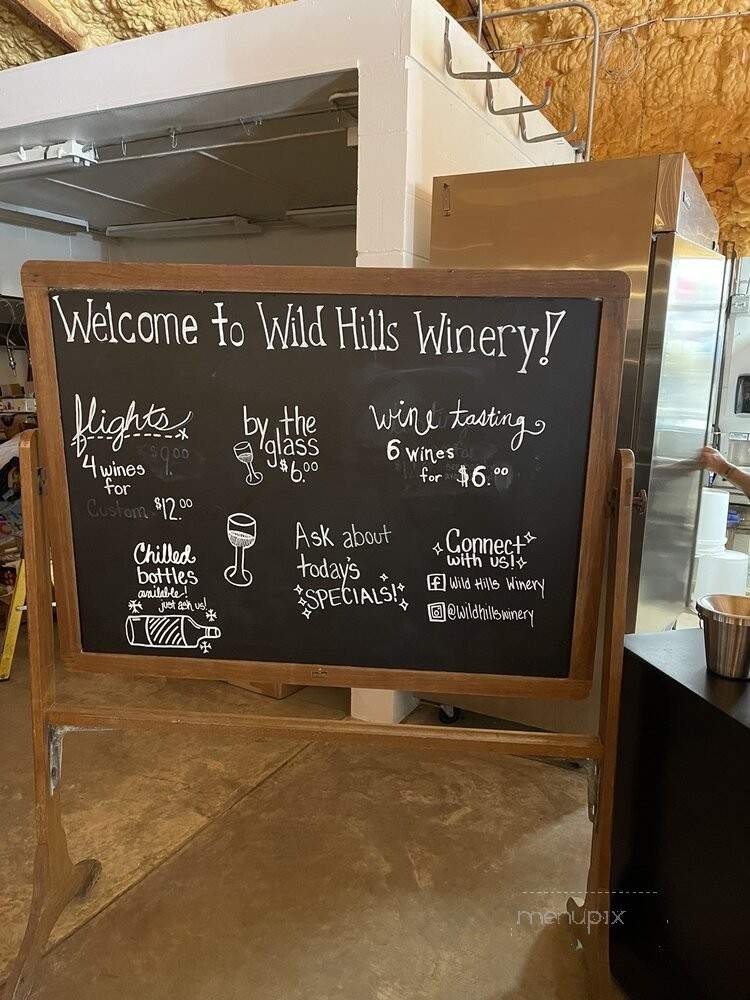 Welcome to Wild Hills Winery!
flights
4 wines $9.00
for
Custom $12.00
by the
glass
$6.00
wine tasting
6 wines
for $6.00
Chilled
bottles
available!
just ask us!
Ask about
today's
SPECIALS!
Connect
with us!
f Wild Hills Winery
@wildhillswinery
menupix